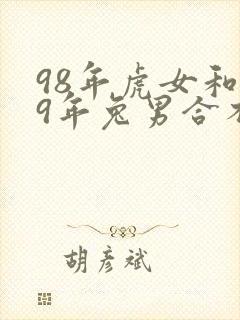 98年虎女和
9年兔男合不
胡彦斌